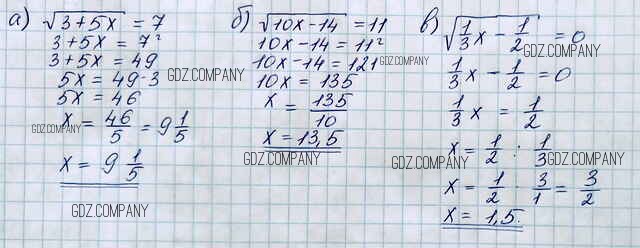 а) √(3+5x) = 7
3+5x = 7²
3+5x = 49
5x = 49-3
5x = 46
x = 46/5 = 9 1/5
x = 9 1/5
б) √(10x-14) = 11
10x-14 = 11²
10x-14 = 121
10x = 135
x = 135/10
x = 13,5
в) √(1/3 x - 1/2) = 0
1/3 x - 1/2 = 0
1/3 x = 1/2
x = 1/2 : 1/3
x = 1/2 · 3/1 = 3/2
x = 1,5.
GDZ.COMPANY
GDZ.COMPANY
GDZ.COMPANY
GDZ.COMPANY
GDZ.COMPANY
GDZ.COMPANY
GDZ.COMPANY
GDZ.COMPANY
GDZ.COMPANY
GDZ.COMPANY